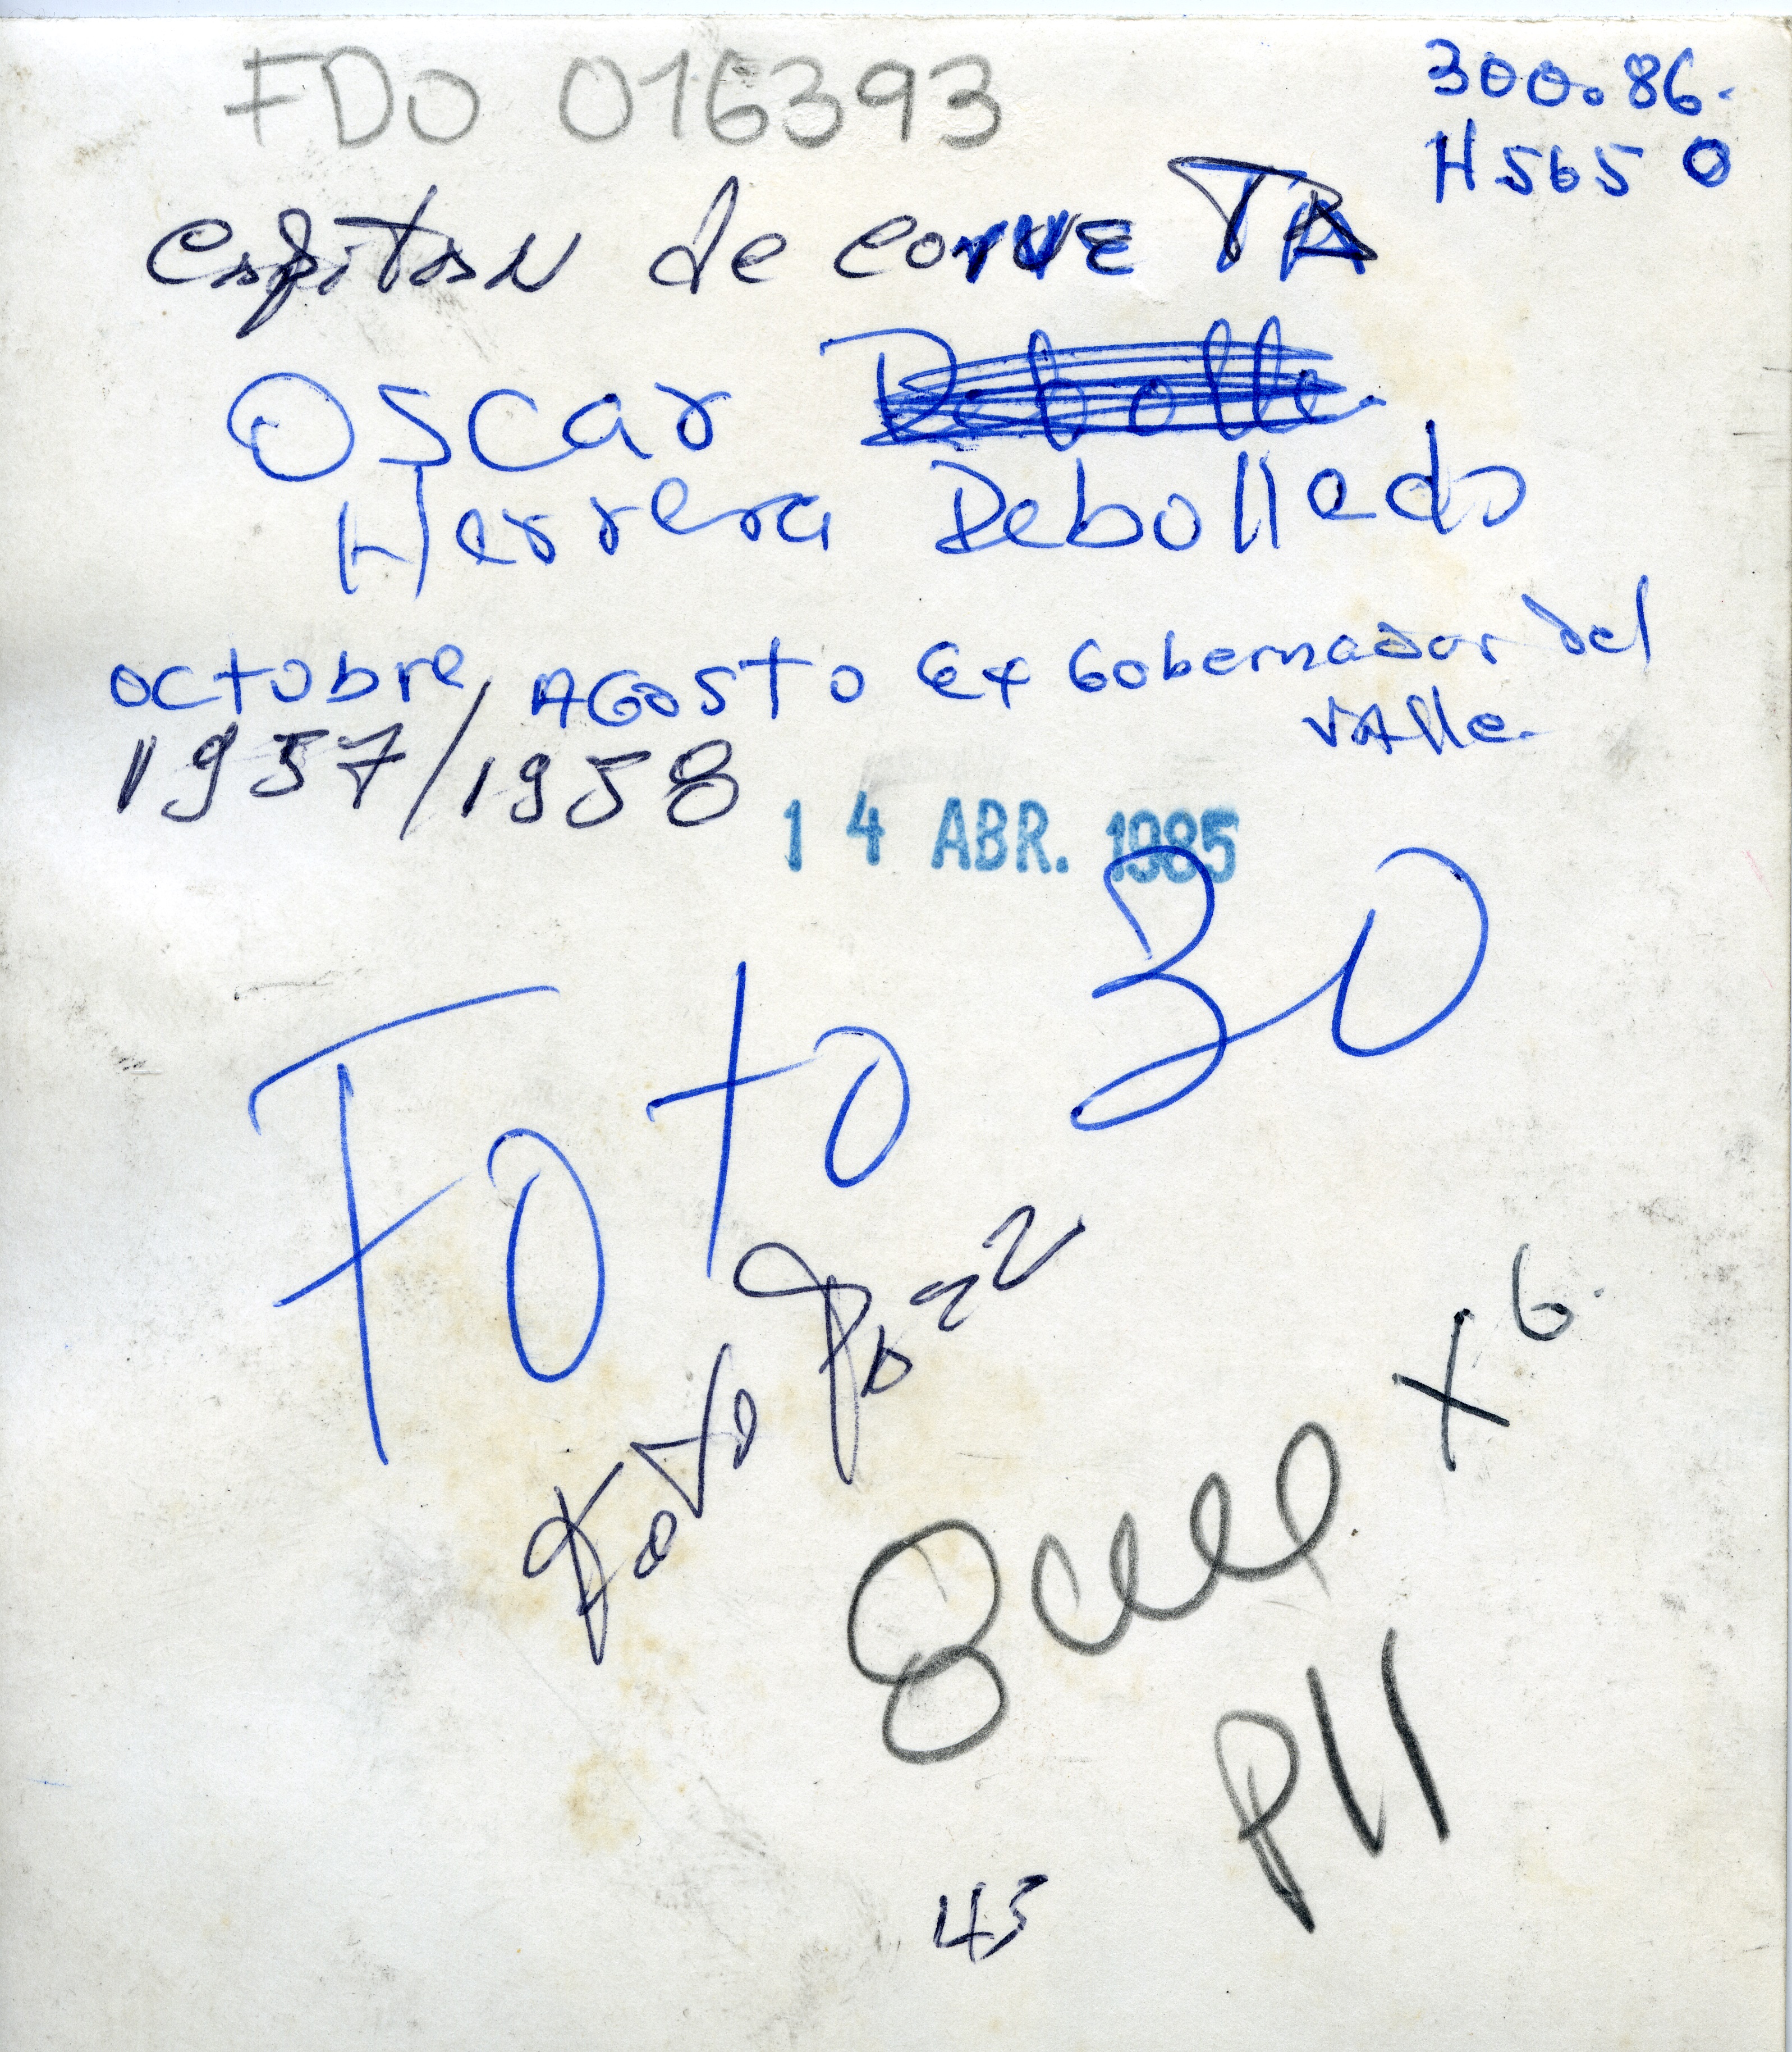 FDO 016393
300.86.
H565 O
Capitan de corveTA
Oscar Rebolle
Herrera Rebolledo
octubre, AGosto Ex Gobernador del
VAlle.
1957/1958
14 ABR. 1985
Foto 30
Foto
x 6.
P11
45